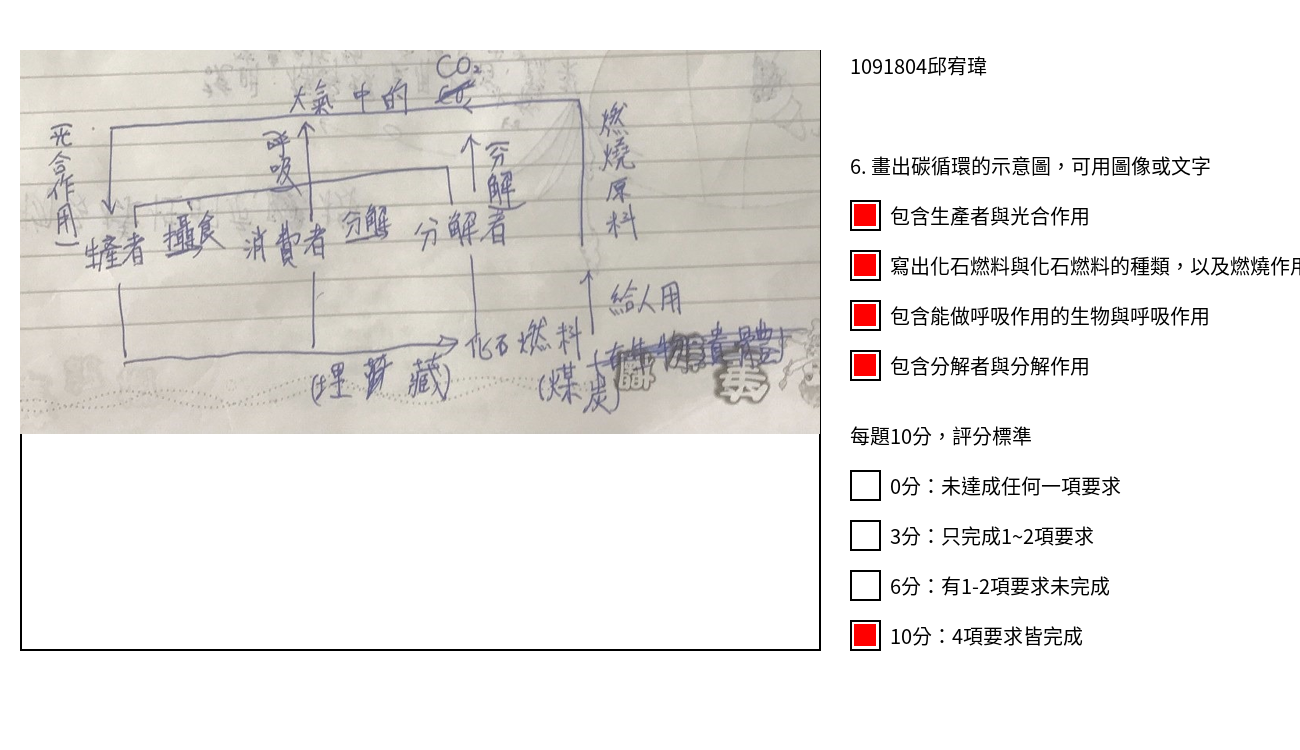 CO₂
大氣中的
(光合作用)
呼吸
(分解)
燃燒原料
生產者
攝食
消費者
分解
分解者
給人用
化石燃料
(埋藏)
(煤炭)
1091804邱宥瑋
6. 畫出碳循環的示意圖，可用圖像或文字
包含生產者與光合作用
寫出化石燃料與化石燃料的種類，以及燃燒作用
包含能做呼吸作用的生物與呼吸作用
包含分解者與分解作用
每題10分，評分標準
0分：未達成任何一項要求
3分：只完成1~2項要求
6分：有1-2項要求未完成
10分：4項要求皆完成